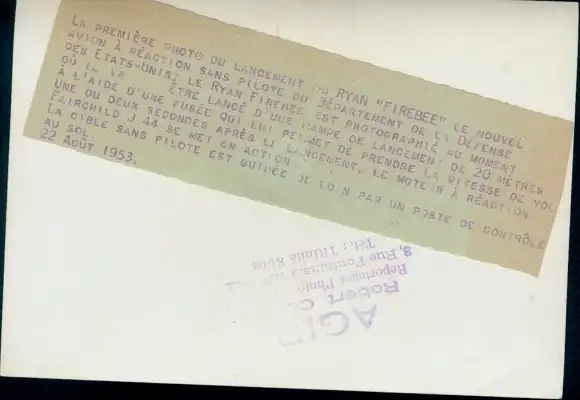 LA PREMIÈRE PHOTO DU LANCEMENT DU RYAN "FIREBEE" LE NOUVEL
AVION À RÉACTION SANS PILOTE DU DÉPARTEMENT DE LA DÉFENSE
DES ETATS-UNIS: LE RYAN FIREBEE EST PHOTOGRAPHIÉ AU MOMENT
OÙ ÊTRE LANCÉ D'UNE RAMPE DE LANCEMENT DE 20 MÈTRES
À L'AIDE D'UNE FUSÉE QUI LUI PERMET DE PRENDRE LA VITESSE DE VOL
UNE OU DEUX SECONDES APRÈS LE LANCEMENT, LE MOTEUR À RÉACTION
FAIRCHILD J 44 SE MET EN ACTION
LA CIBLE SANS PILOTE EST GUIDÉE DE LOIN PAR UN POSTE DE CONTRÔLE
AU SOL.
22 AOÛT 1953.
AGIP
Robert
Reportages Photo
8, Rue Fontaine,
Tél.: TRInité